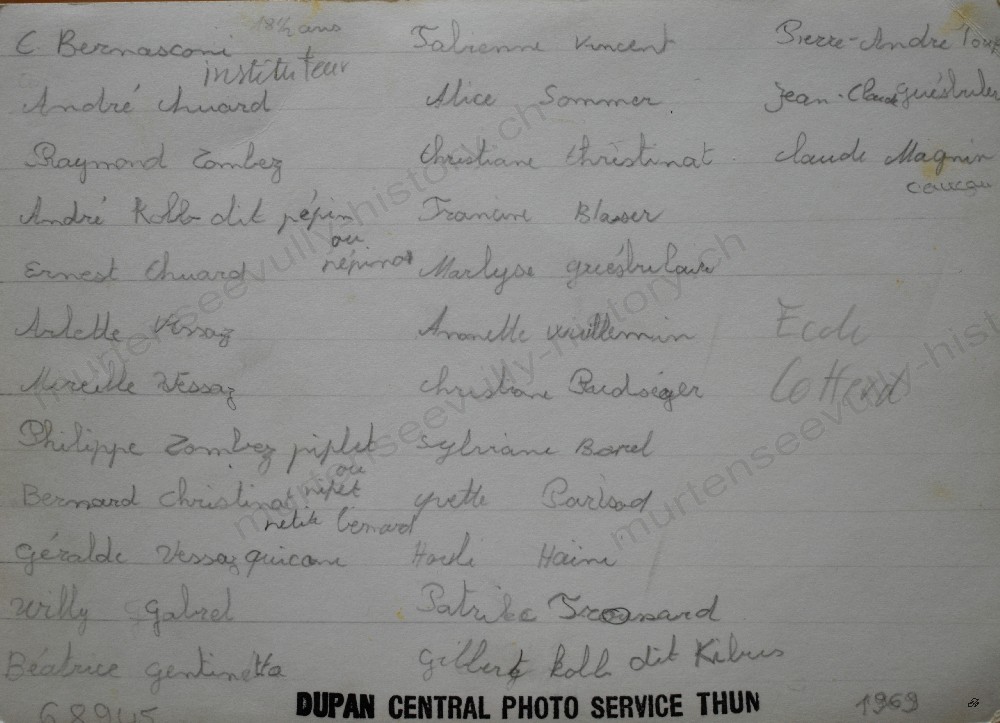 18½ ans
C Bernasconi
instituteur
André Chuard
Raymond Zombez
André Kolb dit pépin
ou
Ernest Chuard
Arlette Vessaz
Mireille Vessaz
Philippe Zombez piplet
ou
Bernard Christinat pipet
petit bernard
Géralde Vessaz
Willy Gabrel
Béatrice Gentinetta
68945
Fabienne Vincent
Alice Sommer
Christiane Christinat
Francine Blaser
Marlyse
Annette Vuillemin
Christiane
Sylviane Borel
Yvette
Patrike
Gilbert Kolb dit Kibus
Pierre-André Loup
Jean-Claude
Claude Magnin
Ecole
Cotterd
DUPAN CENTRAL PHOTO SERVICE THUN
1969
murtenseevully-history.ch
murtenseevully-history.ch
murtenseevully-hist